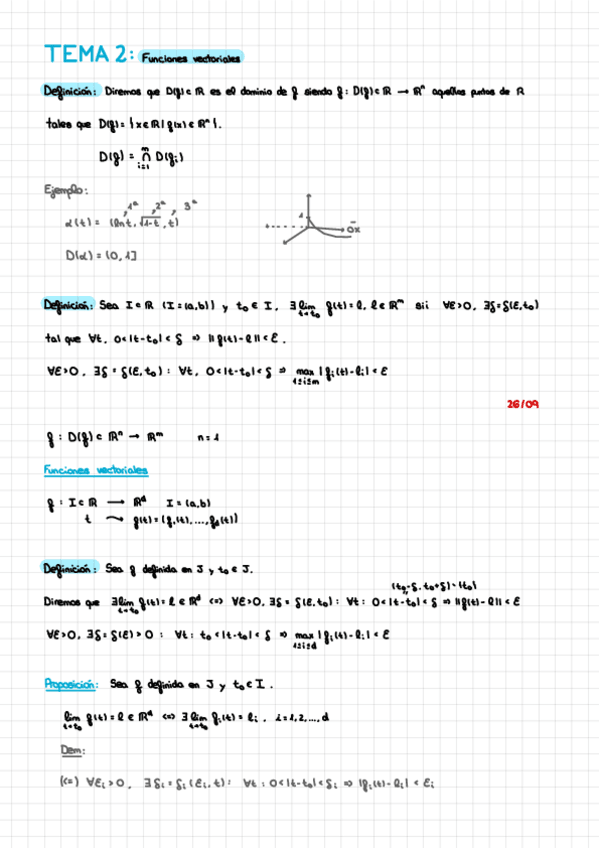 TEMA 2: Funciones vectoriales
Definición: Diremos que D(f) ⊂ ℝ es el dominio de f siendo f: D(f) ⊂ ℝ → ℝⁿ aquellos puntos de ℝ
tales que D(f) = {x ∈ ℝ / f(x) ∈ ℝⁿ}.
D(f) = ⋂ᵢ₌₁ᵐ D(fᵢ)
Ejemplo:
1ª, 2ª, 3ª
α(t) = (ln t, √(1-t), t)
1
0x
D(α) = (0, 1]
Definición: Sea I ⊂ ℝ (I = (a,b)) y t₀ ∈ I, ∃ lim t→t₀ f(t) = l, l ∈ ℝᵐ sii ∀ε>0, ∃δ = δ(ε, t₀)
tal que ∀t, 0<|t-t₀|<δ ⇒ ||f(t)-l||<ε.
∀ε>0, ∃δ = δ(ε, t₀): ∀t, 0<|t-t₀|<δ ⇒ max 1≤i≤m |fᵢ(t)-lᵢ|<ε
26/09
f: D(f) ⊂ ℝⁿ → ℝᵐ n = 1
Funciones vectoriales
f: I ⊂ ℝ → ℝᵈ I = (a,b)
t ⤳ f(t) = (f₁(t),...,f_d(t))
Definición: Sea f definida en J y t₀ ∈ J.
(t₀-δ, t₀+δ)-{t₀}
Diremos que ∃ lim t→t₀ f(t) = l ∈ ℝᵈ <=> ∀ε>0, ∃δ = δ(ε, t₀): ∀t: 0<|t-t₀|<δ ⇒ ||f(t)-l||<ε
∀ε>0, ∃δ = δ(ε)>0: ∀t: t₀<|t-t₀|<δ ⇒ max 1≤i≤d |fᵢ(t)-lᵢ|<ε
Proposición: Sea f definida en J y t₀ ∈ I.
lim t→t₀ f(t) = l ∈ ℝᵈ <=> ∃ lim t→t₀ fᵢ(t) = lᵢ, i = 1,2,...,d
Dem:
(<=) ∀εᵢ>0, ∃δᵢ = δᵢ(εᵢ, t): ∀t: 0<|t-t₀|<δᵢ ⇒ |fᵢ(t)-lᵢ|<εᵢ